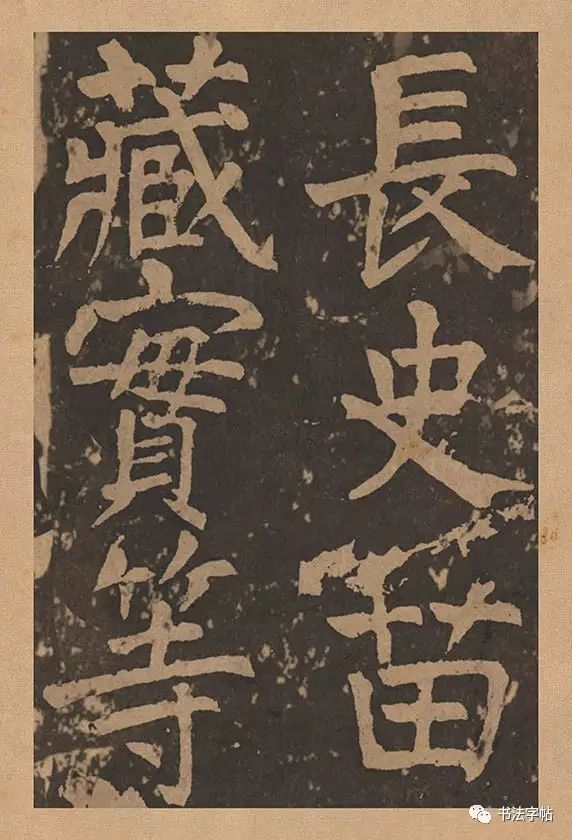 長史苗
藏實等
书法字帖